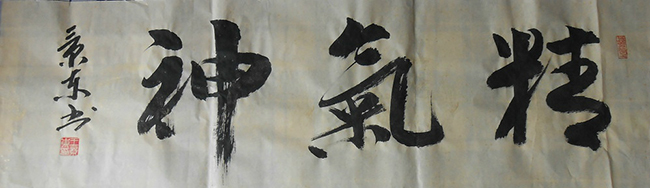 精氣神
景东书